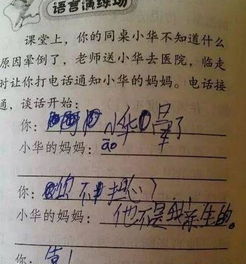 语言演练场
课堂上，你的同桌小华不知道什么
原因晕倒了，老师送小华去医院，临走
时让你打电话通知小华的妈妈。电话接
通，谈话开始：
你：小华晕了
小华的妈妈：ǎo
你：您不担心？
小华的妈妈：他不是我亲生的。
你：